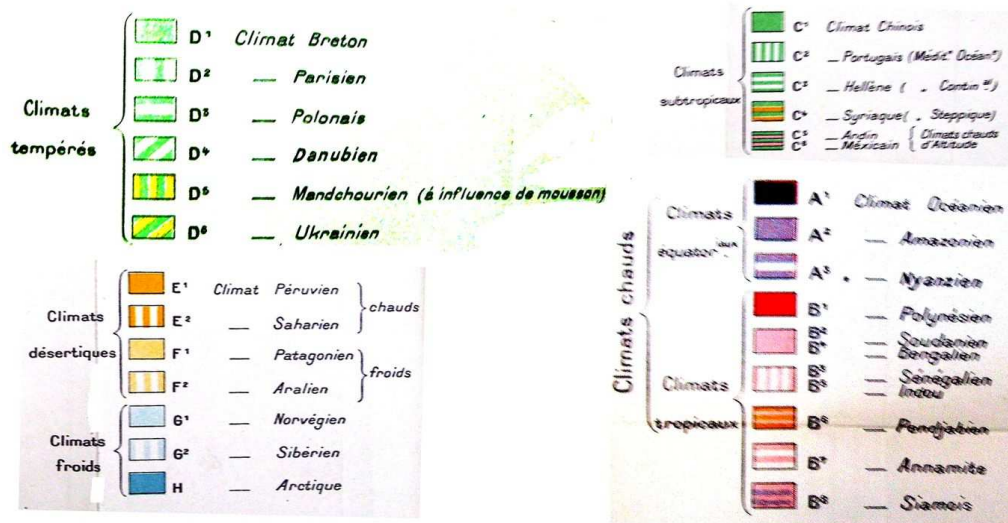 Climats tempérés
D¹ Climat Breton
D² — Parisien
D³ — Polonais
D⁴ — Danubien
D⁵ — Mandchourien (à influence de mousson)
D⁶ — Ukrainien
Climats désertiques
E¹ Climat Péruvien
E² — Saharien
chauds
F¹ — Patagonien
F² — Aralien
froids
Climats froids
G¹ — Norvégien
G² — Sibérien
H — Arctique
Climats subtropicaux
C¹ Climat Chinois
C² — Portugais (Médit. Océanⁿ)
C³ — Hellène ( „ Contin ᵃˡ)
C⁴ — Syriaque ( „ Steppique)
C⁵ — Andin
C⁶ — Méxicain
Climats chauds d'Altitude
Climats chauds
Climats équatorᶦᵃᵘˣ
A¹ Climat Océanien
A² — Amazonien
A³ — Nyanzien
Climats tropicaux
B¹ — Polynésien
B² — Soudanien
B⁴ — Bengalien
B³ — Sénégalien
B⁵ — Indou
B⁶ — Pendjabien
B⁷ — Annamite
B⁸ — Siamois